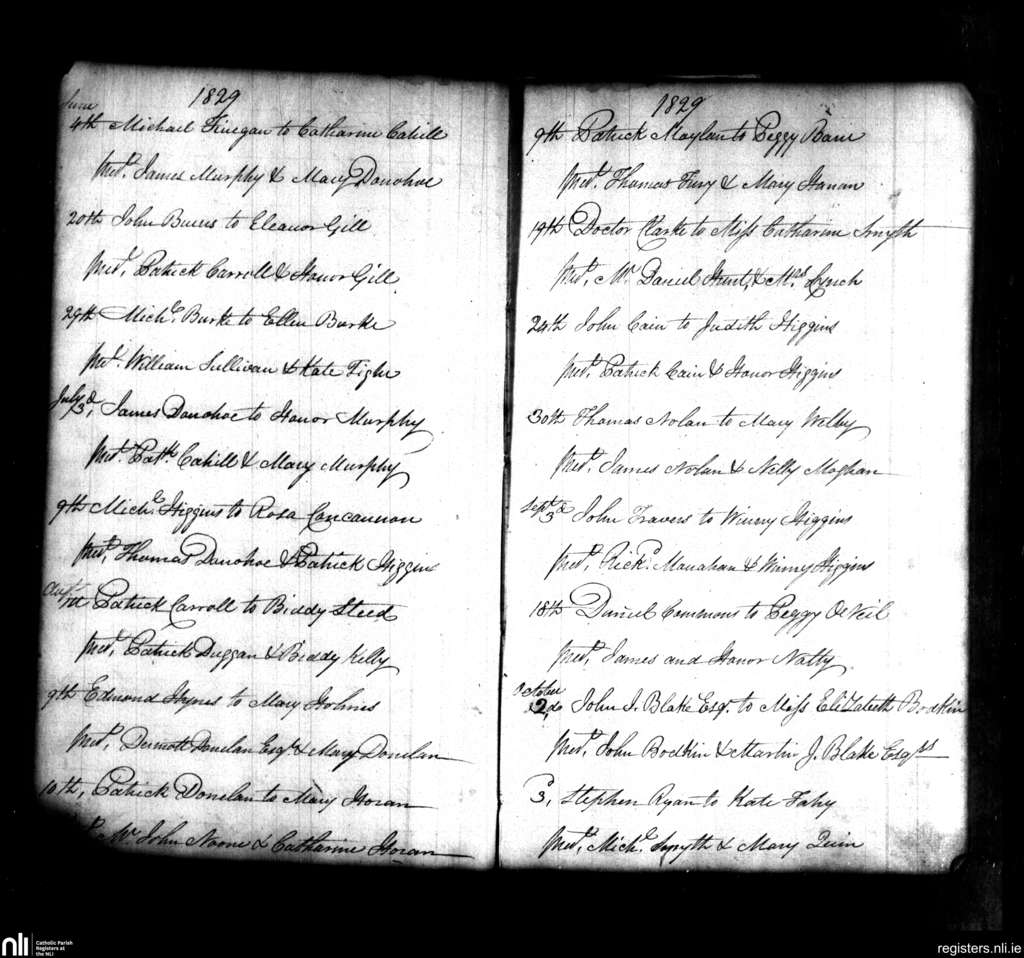 1829
June
4th Michael Finegan to Catharine Cahill
Prest. James Murphy & Mary Donohoe
20th John Burns to Eleanor Gill
Prest. Patrick Carroll & Honor Gill
29th Michl. Burke to Ellen Burke
Prest. William Sullivan & Kate Tighe
July 3d, James Donohoe to Honor Murphy
Prest. Patk. Cahill & Mary Murphy
9th Michl. Higgins to Rosa Concannon
Prest, Thomas Donohoe & Patrick Higgins
Augt. Patrick Carroll to Biddy Steed
Prest, Patrick Duggan & Biddy Kelly
9th Edmond Hynes to Mary Holmes
Prest, Dermott Donelan Esqr. & Mary Donelan
10th, Patrick Donelan to Mary Horan
Mr. John Noone & Catharine Horan
1829
9th Patrick Moylan to Peggy Bane
Prest. Thomas Fury & Mary Hanan
19th Doctor Clarke to Miss Catharine Smyth
Prest, Mr. Daniel Hunt, & Mrs. Lynch
24th John Cain to Judith Higgins
Prest, Patrick Cain & Honor Higgins
30th Thomas Nolan to Mary Welby
Prest. James Nolan & Nelly Moghan
Septr. 3d John Travers to Winny Higgins
Prest, Richd. Manahan & Winny Higgins
18th Daniel Commons to Peggy O'Neil
Prest, James and Honor Natty
October
2d, John J. Blake Esqr. to Miss Elizabeth Bodkin
Prest, John Bodkin & Martin J. Blake Esqrs
3d, Stephen Ryan to Kate Fahy
Prest, Michl. Smyth & Mary Quin
nli
Catholic Parish
Registers at
the NLI
registers.nli.ie